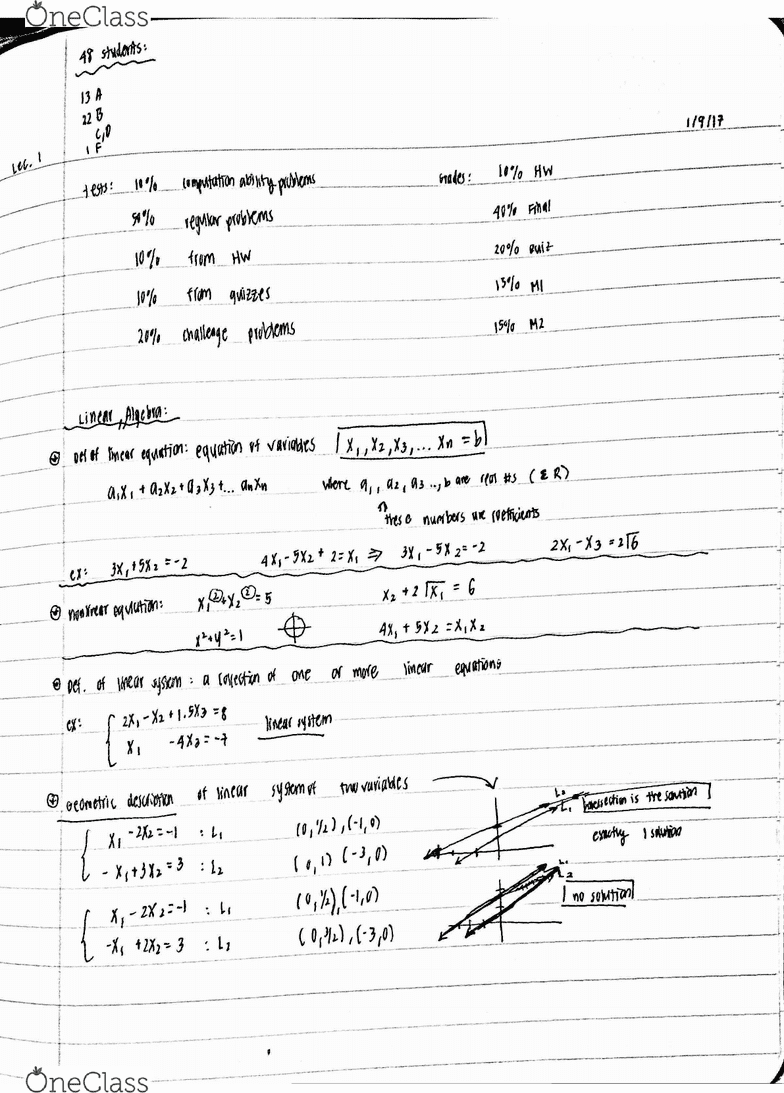 OneClass
48 students:
13 A
22 B
C,D
1 F
1/9/17
Lec. 1
tests: 10% computation ability problems
50% regular problems
10% from HW
10% from quizzes
20% challenge problems
Grades: 10% HW
40% Final
20% Quiz
15% M1
15% M2
Linear Algebra:
Def of linear equation: equation of variables x₁, x₂, x₃, ... xn = b
a₁x₁ + a₂x₂ + a₃x₃ + ... anxn where a₁, a₂, a₃ .., b are real #s (∈ R)
these numbers are coefficients
ex: 3x₁ + 5x₂ = -2 4x₁ - 5x₂ + 2 = x₁ ⇒ 3x₁ - 5x₂ = -2 2x₁ - x₃ = 2√6
nonlinear equation: x₁² + x₂² = 5 x₂ + 2√x₁ = 6
x² + y² = 1 4x₁ + 5x₂ = x₁x₂
Def. of linear system: a collection of one or more linear equations
ex: 2x₁ - x₂ + 1.5x₃ = 8
x₁ - 4x₃ = -7
linear system
Geometric description of linear system of two variables
x₁ - 2x₂ = -1 : L₁ (0, 1/2), (-1, 0)
-x₁ + 3x₂ = 3 : L₂ (0, 1) (-3, 0)
L₂
L₁
intersection is the solution
exactly 1 solution
x₁ - 2x₂ = -1 : L₁ (0, 1/2), (-1, 0)
-x₁ + 2x₂ = 3 : L₂ (0, 3/2), (-3, 0)
L₁
L₂
no solution
OneClass